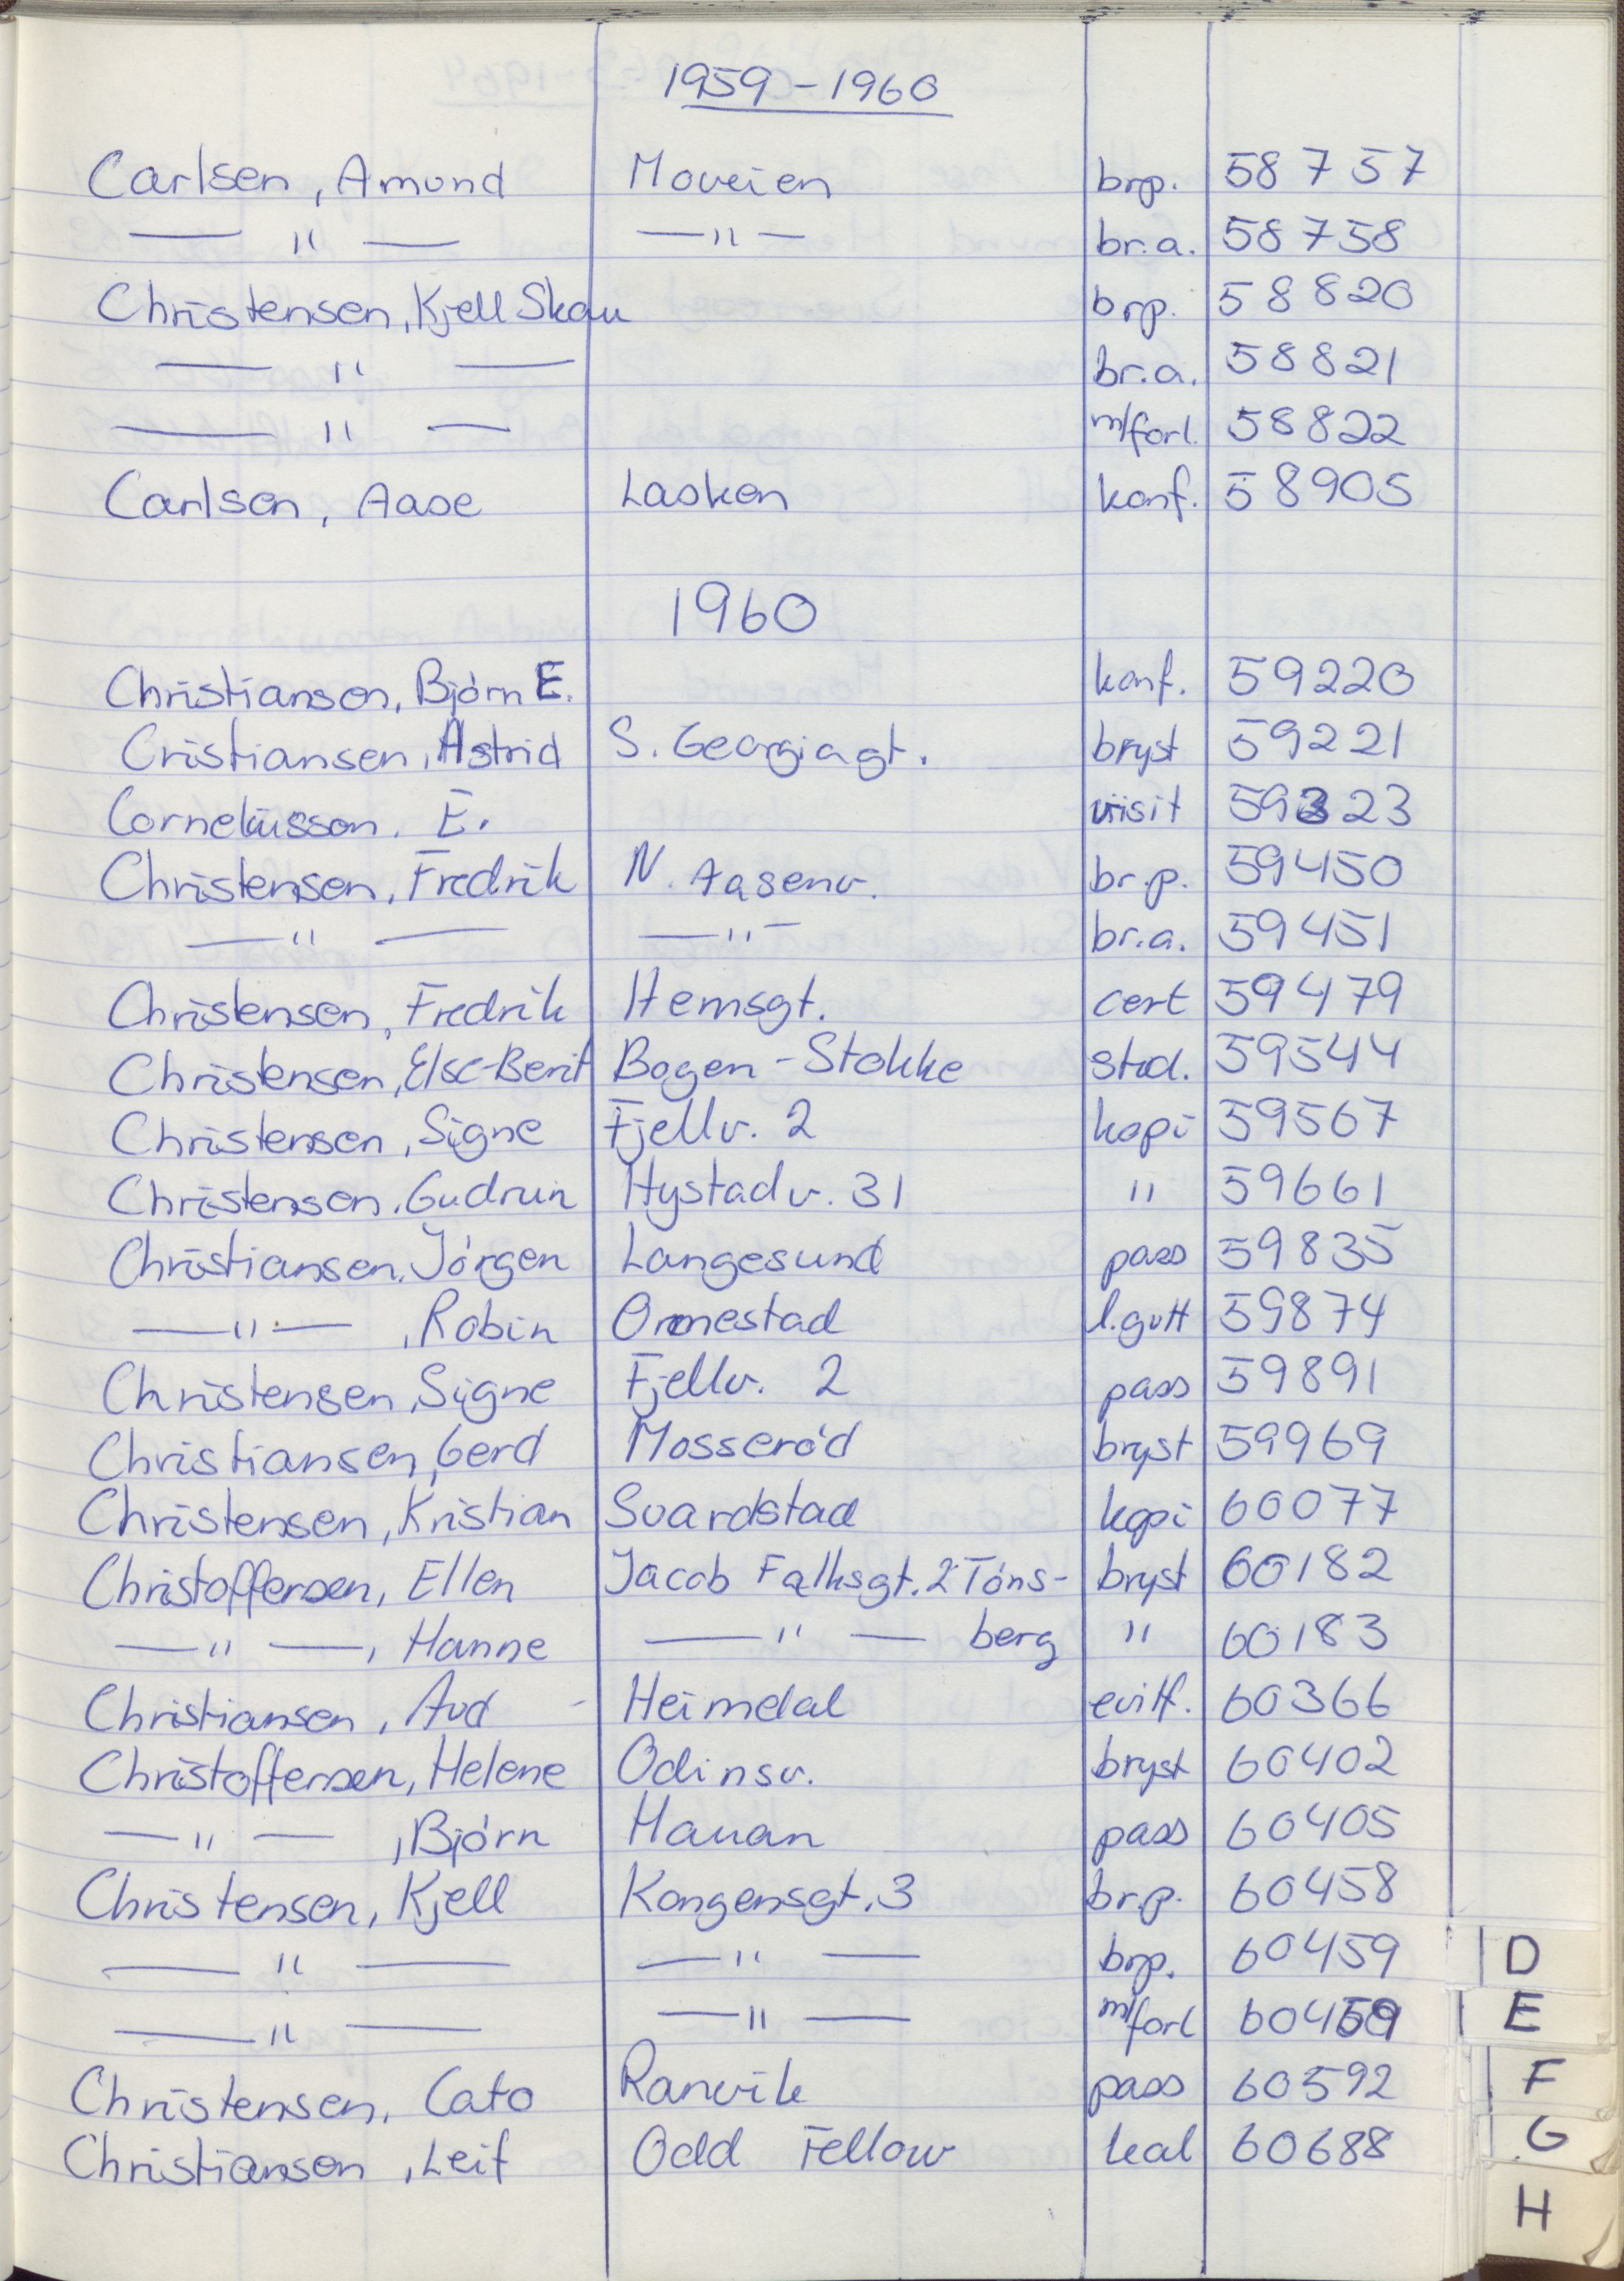 1959 - 1960
Carlsen, Amund Moveien brp. 58757
— " — — " — br.a. 58758
Christensen, Kjell Skau brp. 58820
— " — br.a. 58821
— " — m/forl. 58822
Carlsen, Aase Lasken konf. 58905
1960
Christiansen, Bjórn E. konf. 59220
Cristiansen, Astrid S. Georgiagt. bryst 59221
Corneliussen. E. visit 59323
Christensen, Fredrik N. Aasenv. br.p. 59450
— " — — " — br.a. 59451
Christensen, Fredrik Hemsgt. cert 59479
Christensen, Else-Berit Bogen - Stokke stud. 59544
Christensen, Signe Fjellv. 2 kopi 59567
Christensen, Gudrun Hystadv. 31 " 59661
Christiansen, Jórgen Langesund pass 59835
— " — , Robin Ormestad l.gutt 59874
Christensen, Signe Fjellv. 2 pass 59891
Christiansen, Gerd Mosseród bryst 59969
Christensen, Kristian Svardstad kopi 60077
Christoffersen, Ellen Jacob Falksgt. 2 Tóns- bryst 60182
— " — , Hanne — " — berg " 60183
Christiansen, Aud Heimdal 60366
Christoffersen, Helene Odinsv. bryst 60402
— " — , Bjórn Hauan pass 60405
Christensen, Kjell Kongensgt. 3 br.p. 60458
— " — — " — brp. 60459
— " — — " — m/forl
Christensen, Cato Ranvik pass 60592
Christiansen, Leif Odd Fellow kal 60688
D
E
F
G
H